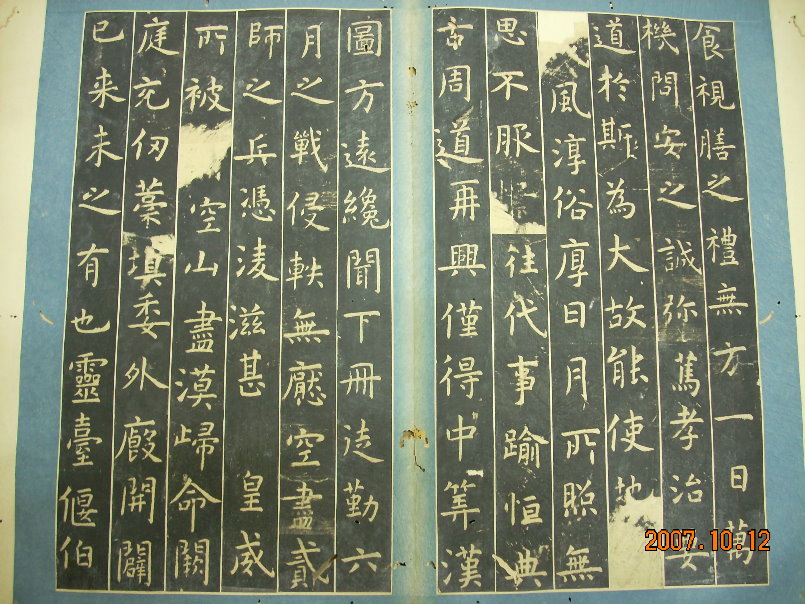 食視膳之禮無方一日萬
機問安之誠弥萬孝治要
道於斯為大故能使地
風淳俗厚日月所照無
思不服 往代事踰恒典
古周道再興僅得中筭漢
圖方遠纔聞下冊徒勤六
月之戰侵軼無懕空盡貳
師之兵憑淩滋甚 皇威
所被 空山盡漠歸命闕
庭充仞藁填委外廄開闢
已来未之有也靈臺偃伯
2007.10.12